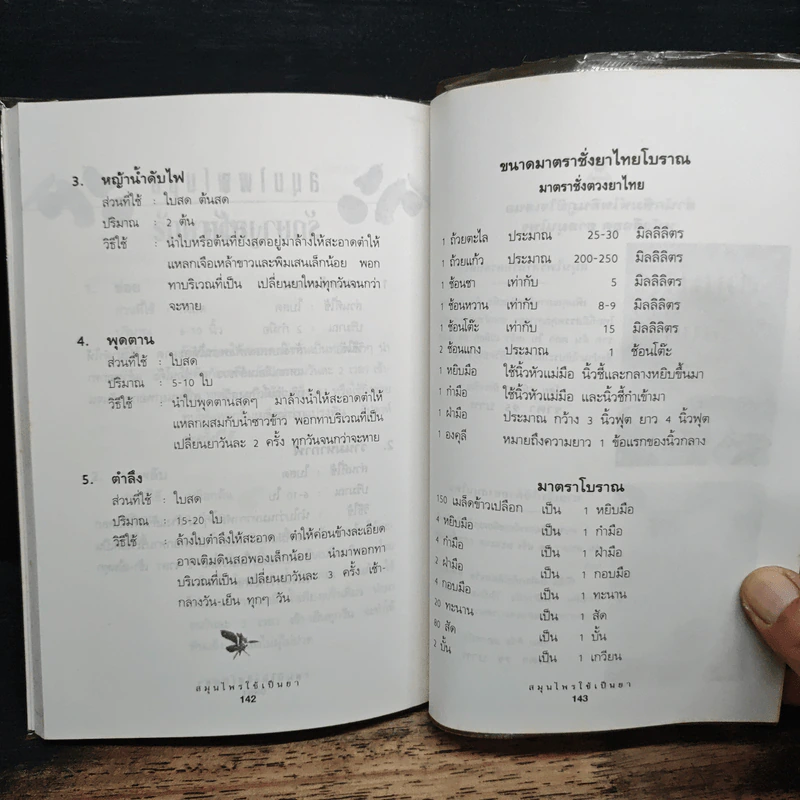 3. หญ้าน้ำดับไฟ
ส่วนที่ใช้ : ใบสด ต้นสด
ปริมาณ : 2 ต้น
วิธีใช้ : นำใบหรือต้นที่ยังสดอยู่มาล้างให้สะอาดตำให้
แหลกเจือเหล้าขาวและพิมเสนเล็กน้อย พอก
ทาบริเวณที่เป็น เปลี่ยนยาใหม่ทุกวันจนกว่า
จะหาย
4. พุดตาน
ส่วนที่ใช้ : ใบสด
ปริมาณ : 5-10 ใบ
วิธีใช้ : นำใบพุดตานสดๆ มาล้างน้ำให้สะอาดตำให้
แหลกผสมกับน้ำซาวข้าว พอกทาบริเวณที่เป็น
เปลี่ยนยาวันละ 2 ครั้ง ทุกวันจนกว่าจะหาย
5. ตำลึง
ส่วนที่ใช้ : ใบสด
ปริมาณ : 15-20 ใบ
วิธีใช้ : ล้างใบตำลึงให้สะอาด ตำให้ค่อนข้างละเอียด
อาจเติมดินสอพองเล็กน้อย นำมาพอกทา
บริเวณที่เป็น เปลี่ยนยาวันละ 3 ครั้ง เช้า-
กลางวัน-เย็น ทุกๆ วัน
สมุนไพรใช้เป็นยา
142
ขนาดมาตราชั่งยาไทยโบราณ
มาตราชั่งตวงยาไทย
1 ถ้วยตะไล ประมาณ 25-30 มิลลิลิตร
1 ถ้วยแก้ว ประมาณ 200-250 มิลลิลิตร
1 ช้อนชา เท่ากับ 5 มิลลิลิตร
1 ช้อนหวาน เท่ากับ 8-9 มิลลิลิตร
1 ช้อนโต๊ะ เท่ากับ 15 มิลลิลิตร
2 ช้อนแกง ประมาณ 1 ช้อนโต๊ะ
1 หยิบมือ ใช้นิ้วหัวแม่มือ นิ้วชี้และกลางหยิบขึ้นมา
1 กำมือ ใช้นิ้วหัวแม่มือ และนิ้วชี้กำเข้ามา
1 ฝ่ามือ ประมาณ กว้าง 3 นิ้วฟุต ยาว 4 นิ้วฟุต
1 องคุลี หมายถึงความยาว 1 ข้อแรกของนิ้วกลาง
มาตราโบราณ
150 เมล็ดข้าวเปลือก เป็น 1 หยิบมือ
4 หยิบมือ เป็น 1 กำมือ
4 กำมือ เป็น 1 ฝ่ามือ
2 ฝ่ามือ เป็น 1 กอบมือ
4 กอบมือ เป็น 1 ทะนาน
20 ทะนาน เป็น 1 สัด
80 สัด เป็น 1 บั้น
2 บั้น เป็น 1 เกวียน
สมุนไพรใช้เป็นยา
143